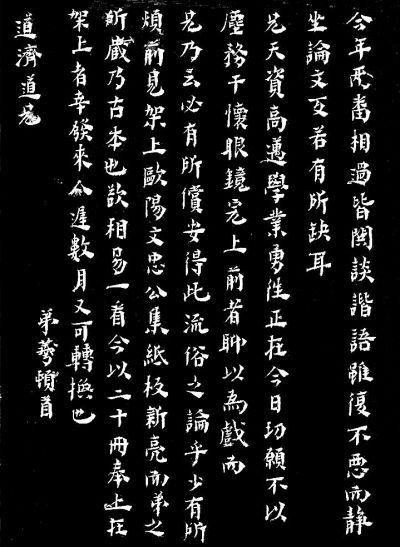 今年两番相過皆閑談諧語雖復不惡而静
坐論文反若有所缺耳
兄天資高邁學業勇往正在今日切願不以
塵務干懷眼鏡完上前者聊以為戲而
兄乃云必有所償安得此流俗之論乎少有所
煩前見架上歐陽文忠公集紙板新亮而弟之
所藏乃古本也欲相易一看今以二十冊奉上在
架上者幸發來分遲數月又可轉換也
弟 頓首
道濟道兄